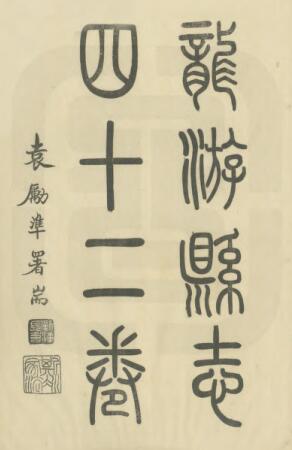 龍游縣志
四十二卷
袁勵準署耑